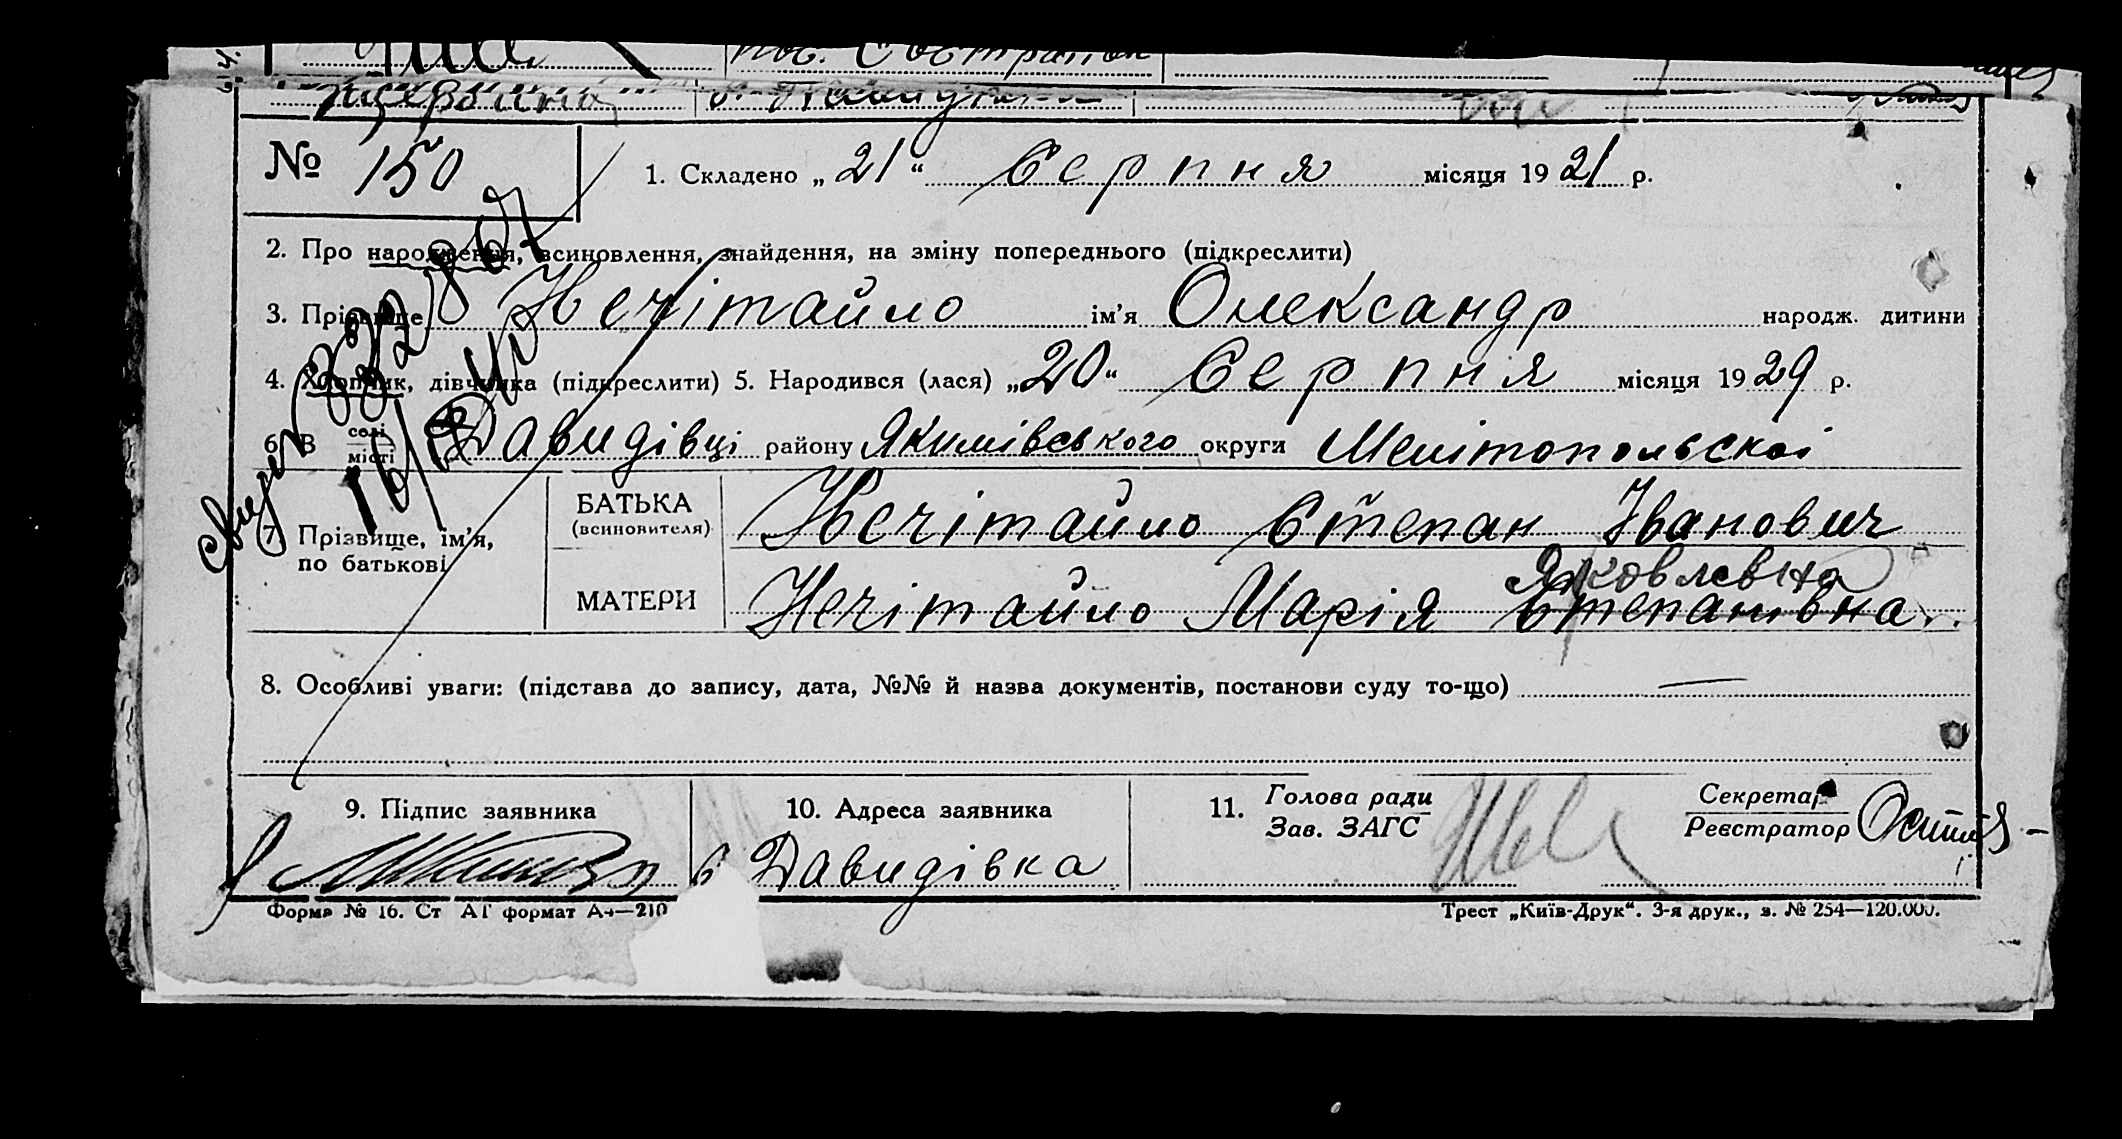 № 150
1. Складено „21“ Серпня місяця 1921 р.
2. Про народження, всиновлення, знайдення, на зміну попереднього (підкреслити)
3. Прізвище Нечітайло ім'я Олександр народж. дитини
4. Хлопчик, дівчинка (підкреслити) 5. Народився (лася) „20“ Серпня місяця 1929 р.
6. В селі місті Давидівці району Якимівського округи Мелітопольскої
7. Прізвище, ім'я, по батькові
БАТЬКА (всиновителя) Нечітайло Степан Іванович
Яковлевна
МАТЕРИ Нечітайло Марія Степанівна.
8. Особливі уваги: (підстава до запису, дата, №№ й назва документів, постанови суду то-що) —
9. Підпис заявника
10. Адреса заявника
с Давидівка
11. Голова ради Зав. ЗАГС
Секретар Реєстратор
Форма № 16. Ст АГ формат А4—210
Трест „Київ-Друк“. 3-я друк., з. № 254—120.000.